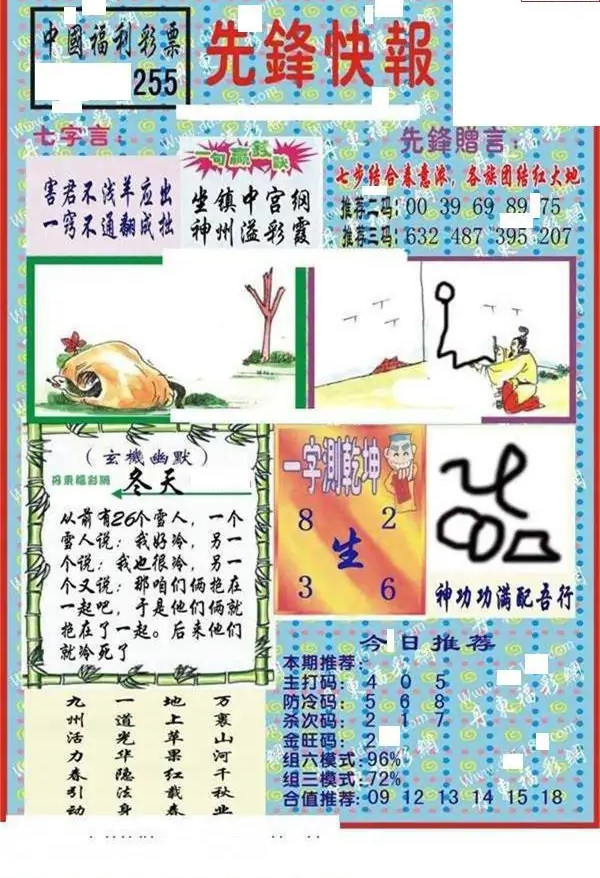 中國福利彩票
255
先鋒快報
七字言：
害君不浅羊应出
一窍不通翻成拙
一句赢
坐镇中宫纲
神州溢彩霞
先鋒赠言：
七步结合春意浓，各族团结红大地
推荐二码：00 39 69 89 75
推荐三码：632 487 395 207
（玄機幽默）
丹東福彩網
冬天
从前有26个雪人，一个
雪人说：我好冷，另一
个说：我也很冷，另一
个又说：那咱们俩抱在
一起吧，于是他们俩就
抱在了一起。后来他们
就冷死了
一字測乾坤
8 2
生
3 6
神功功满配吾行
九州活力春引动
一道光华隐法身
地上苹果红载春
万裏山河千秋业
今日推荐
本期推荐：
主打码：4 0 5
防冷码：5 6 8
杀次码：2 1 7
金旺码：2
组六模式：96%
组三模式：72%
合值推荐：09 12 13 14 15 18